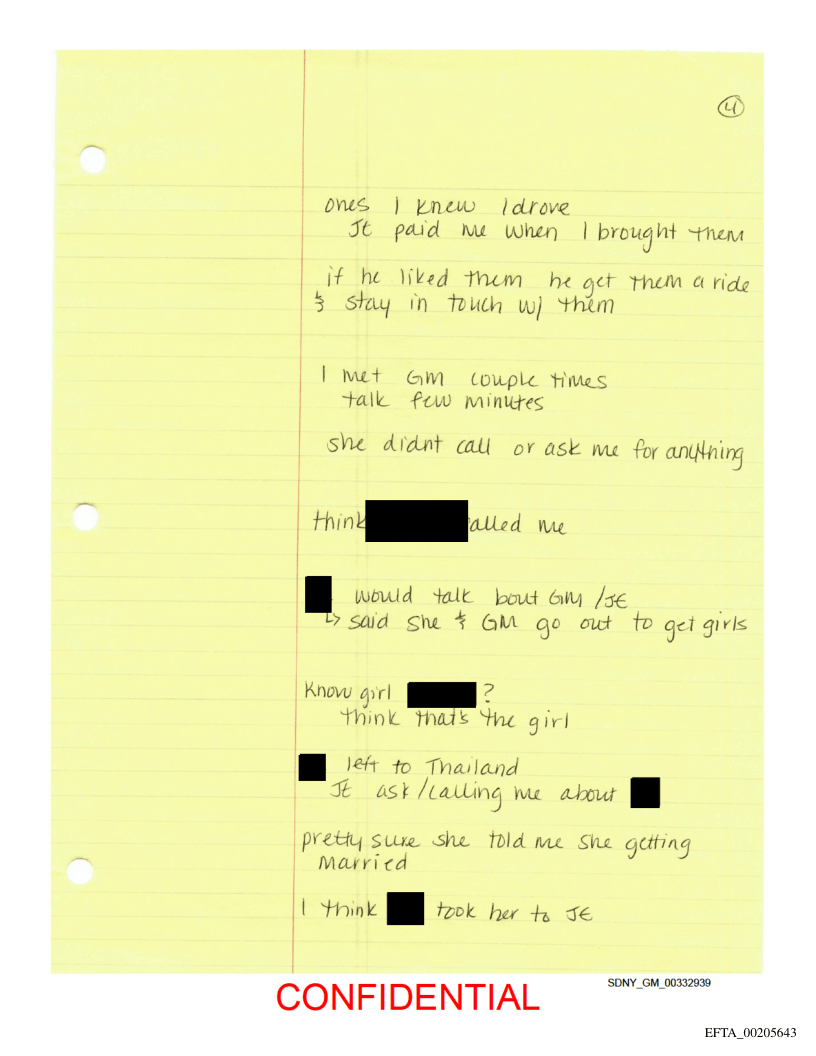 4
ones I knew I drove
JE paid me when I brought them
if he liked them he get them a ride
& stay in touch w/ them
I met GM couple times
talk few minutes
she didnt call or ask me for anything
think alled me
would talk bout GM / JE
↳ said she & GM go out to get girls
Know girl ?
think that's the girl
left to Thailand
JE ask/calling me about
pretty sure she told me she getting
married
I think took her to JE
CONFIDENTIAL
SDNY_GM_00332939
EFTA_00205643